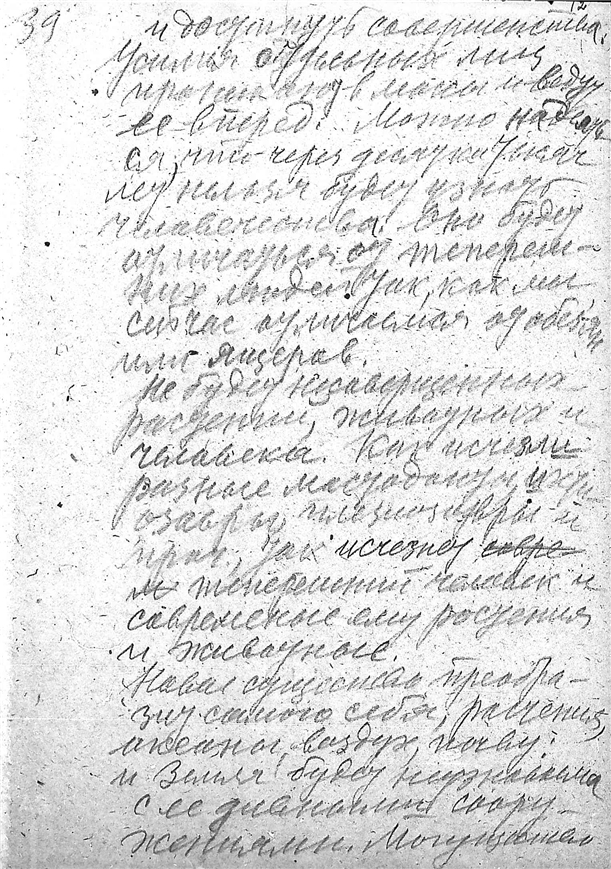 39
12
и достигнуть совершенства.
Усилия отдельных лиц
проникнут в массы и ведут
ее вперед. Можно надеять-
ся, что через десятки тысяч
лет нельзя будет узнать
человечества. Оно будет
отличаться от тепереш-
них людей так, как мы
сейчас отличаемся от обезьян
или ящеров.
Не будет несовершенных
растений, животных и
человека. Как исчезли
разные мастодонты, ихти-
озавры, плезиозавры и
проч., так исчезнет совре-
м теперешний человек и
современые ему растения
и животные.
Новое существо преобра-
зит самого себя, растения,
океаны, воздух, почву.
и Земля будет
с ее дивными соору-
жениями. Могущество